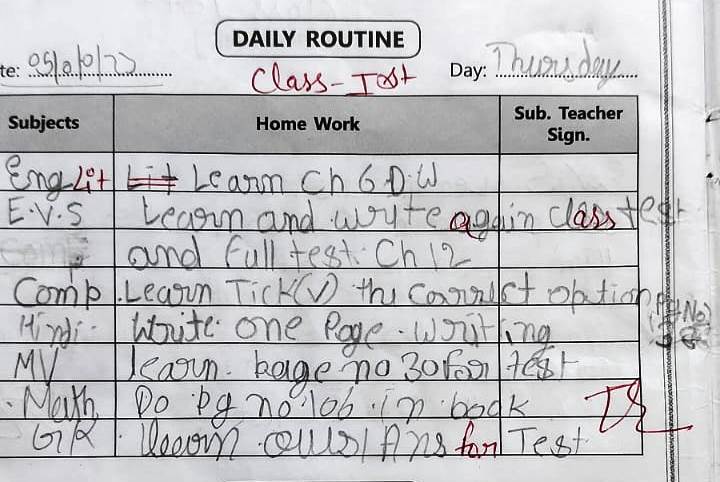 DAILY ROUTINE
te: Day: Thursday
Class-Test
Subjects Home Work Sub. Teacher Sign.
Eng Lit Learn Ch 6 D.W
E.V.S Learn and write again class test
and full test. Ch 12
Comp. Learn Tick(√) the correct option
Hindi. Write one Page. writing
MV learn. page no 30 for test
Math Do pg no. 106 in book
GK learn Ans for Test